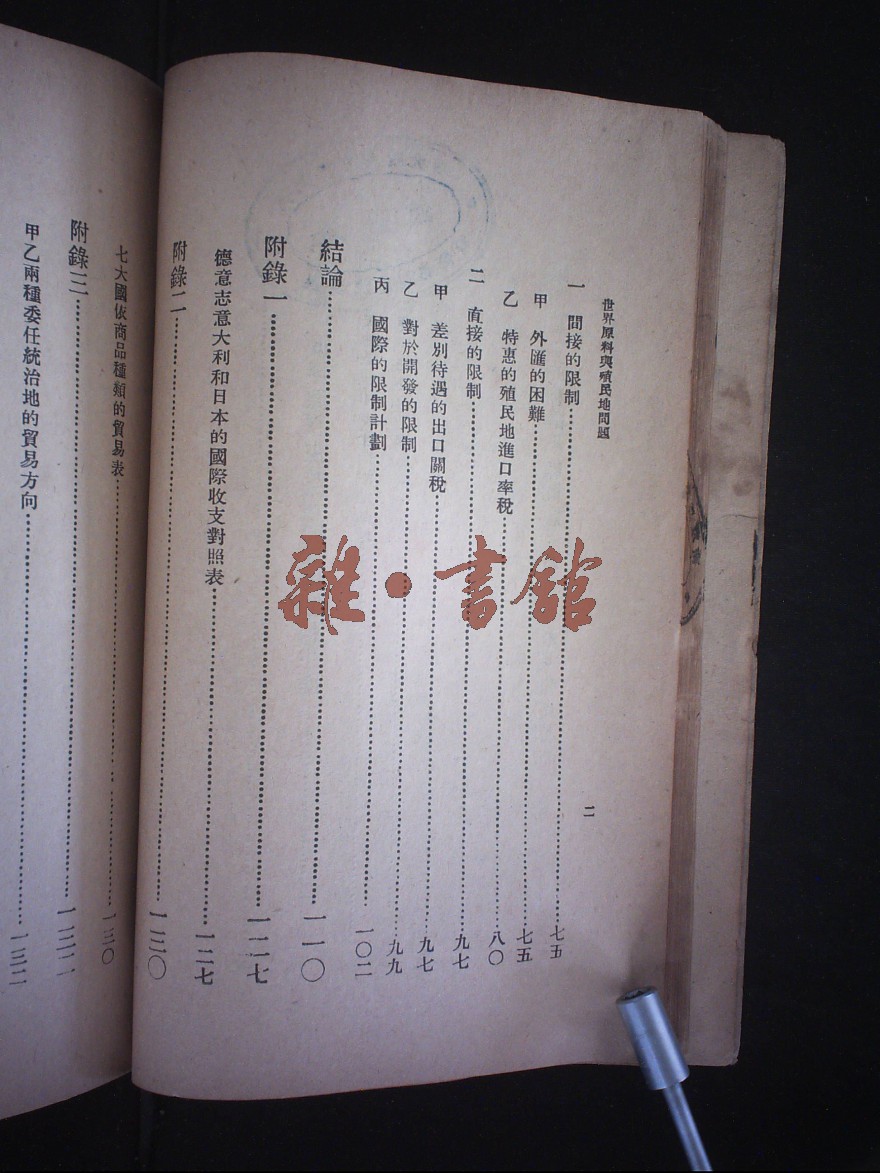 世界原料與殖民地問題
二
一 間接的限制……七五
甲 外匯的困難……七五
乙 特惠的殖民地進口率稅……八〇
二 直接的限制……九七
甲 差別待遇的出口關稅……九七
乙 對於開發的限制……九九
丙 國際的限制計劃……一〇二
結論……一一〇
附錄一……一二七
德意志意大利和日本的國際收支對照表……一二七
附錄二……一三〇
七大國依商品種類的貿易表……一三〇
附錄三……一三二
甲乙兩種委任統治地的貿易方向……一三二
雜·書館